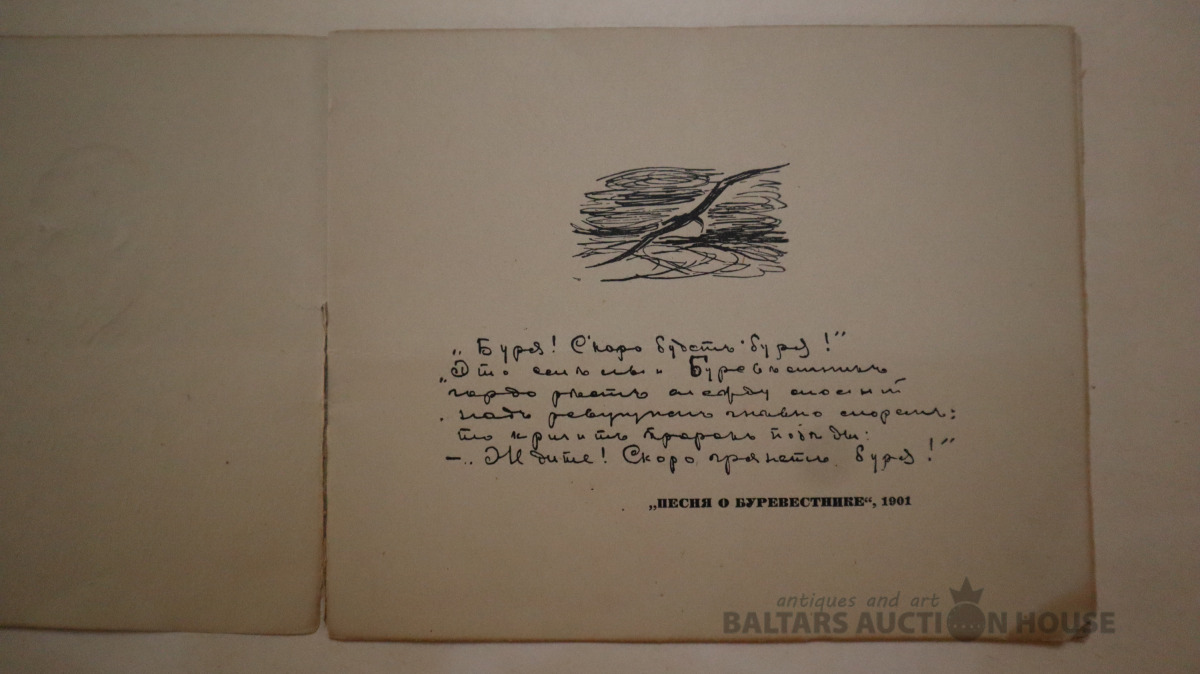 „Буря! Скоро будетъ буря!"
„Это смѣлый Буревѣстникъ
гордо рѣетъ между молній
надъ ревущимъ гнѣвно моремъ;
то кричитъ пророкъ побѣды:
—„Ждите! Скоро грянетъ буря!"
„ПЕСНЯ О БУРЕВЕСТНИКЕ“, 1901
antiques and art
BALTARS AUCTION HOUSE